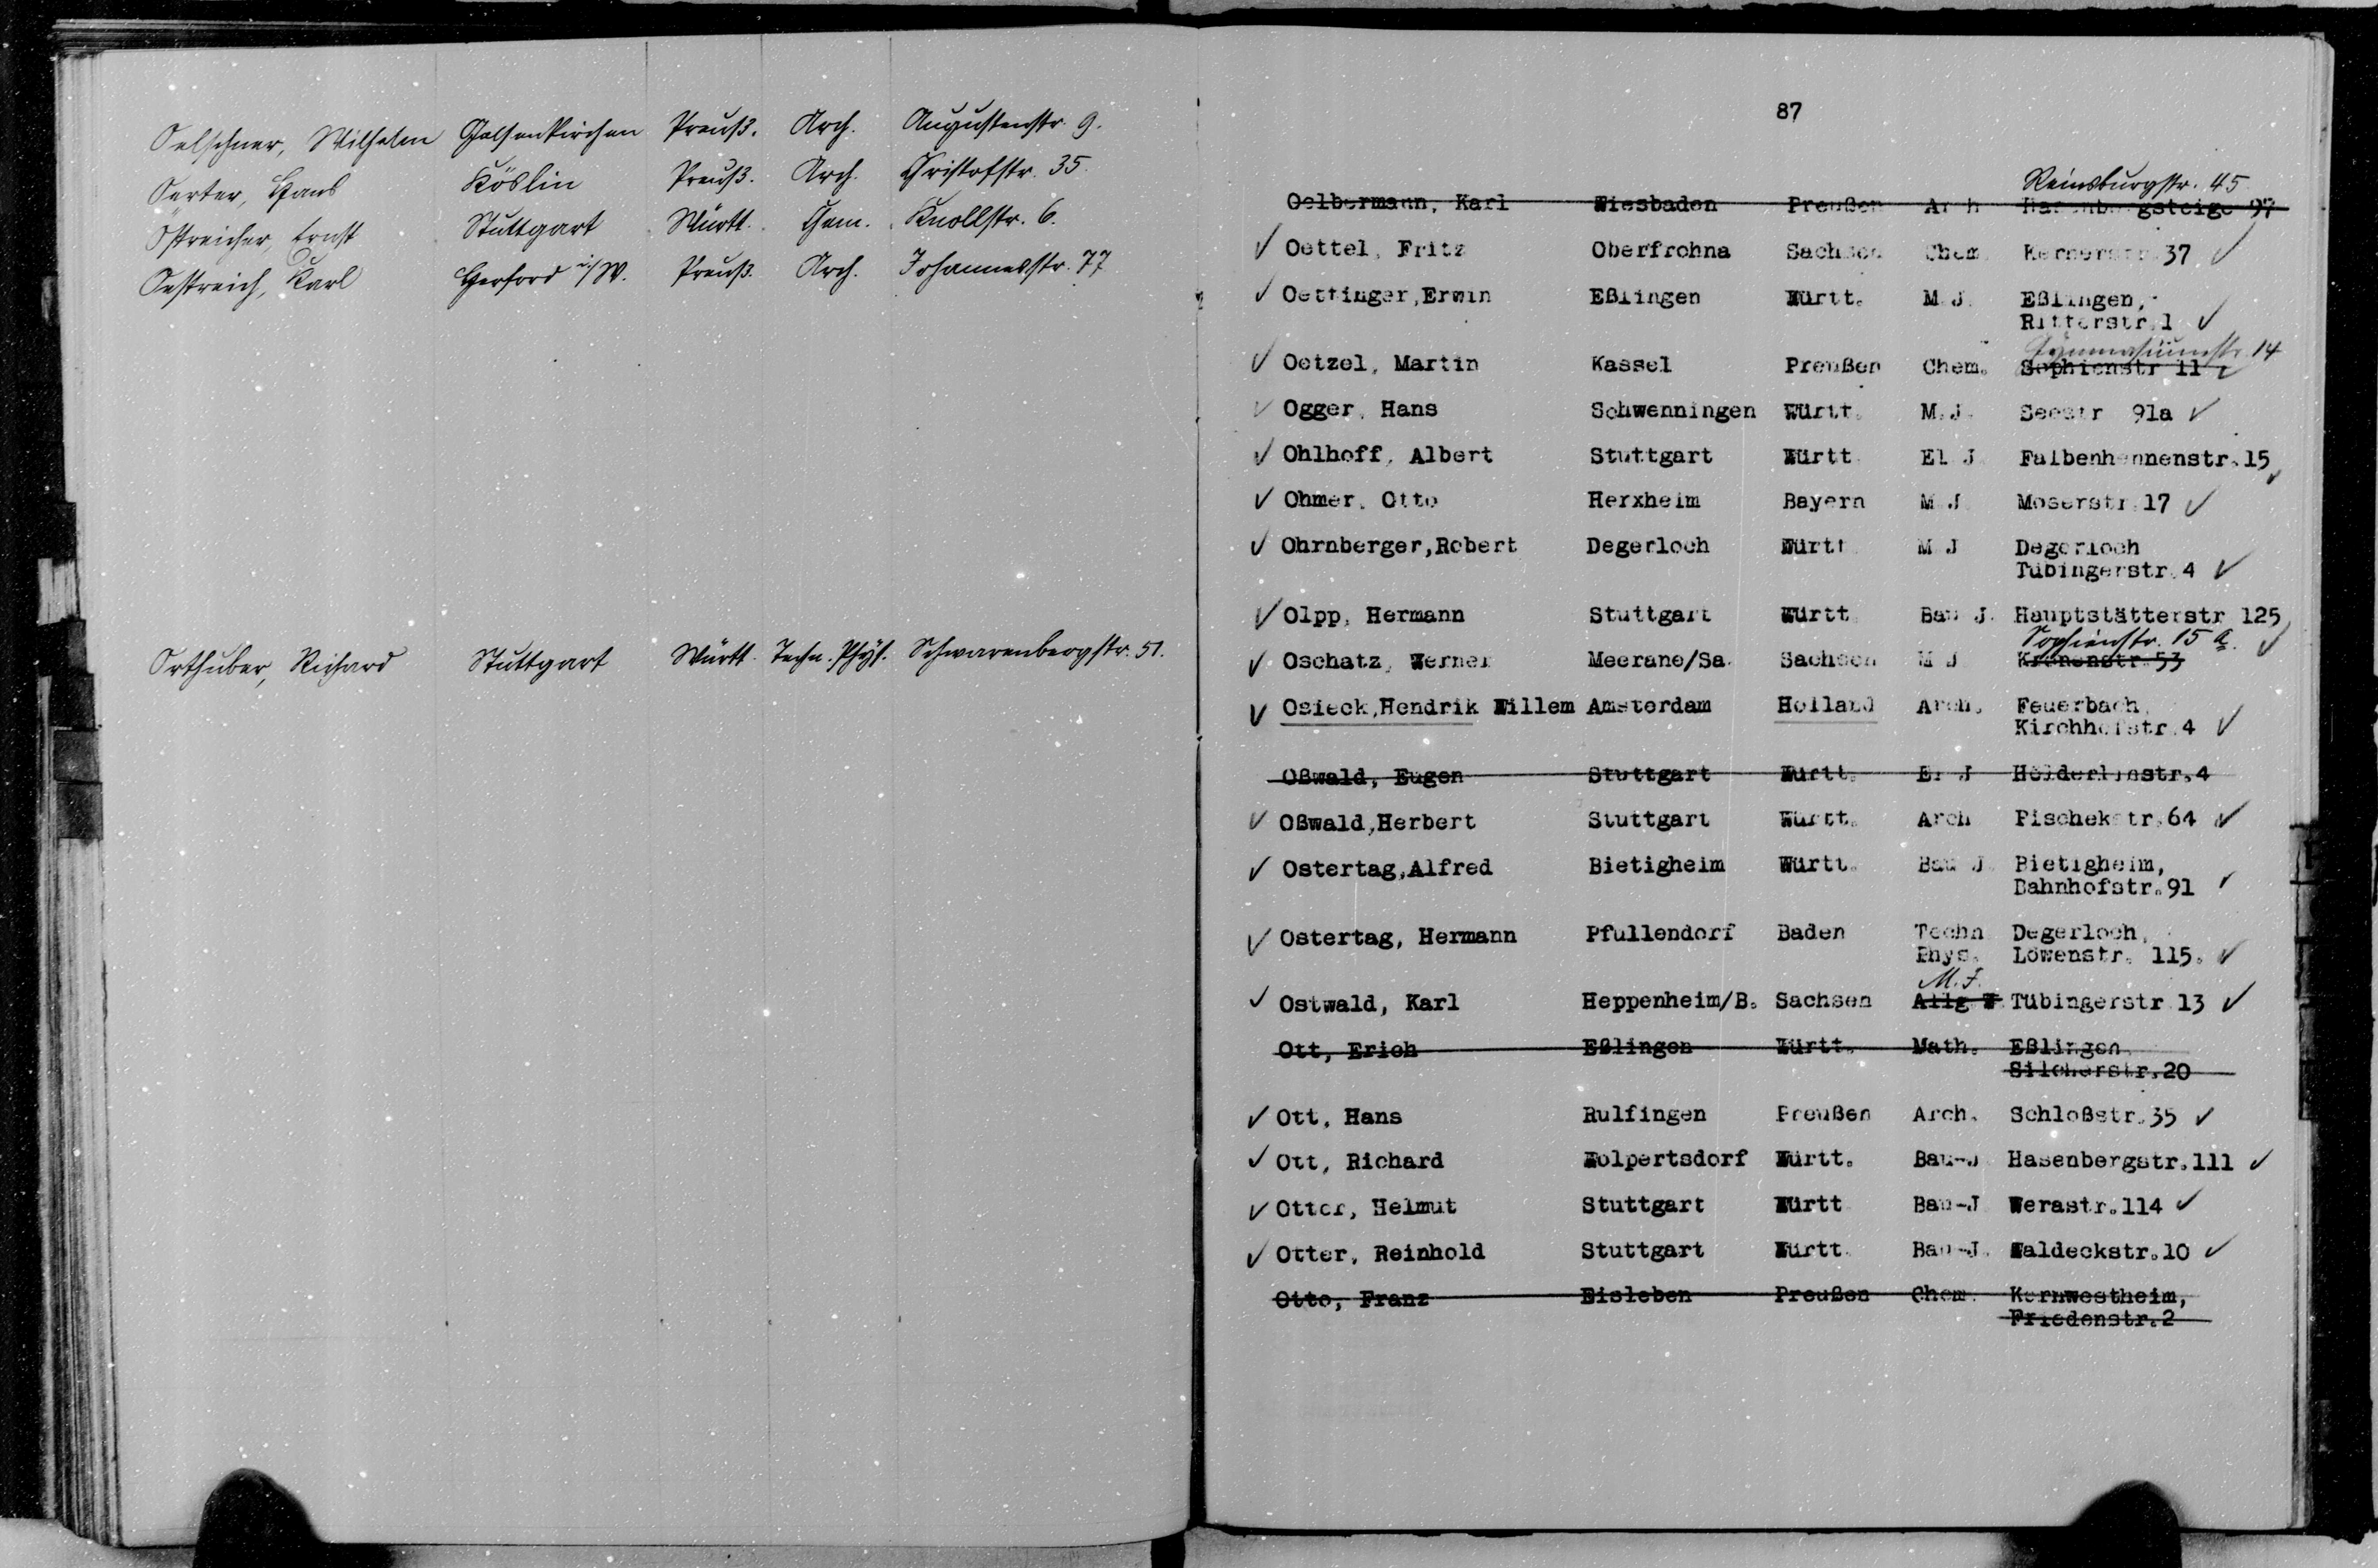 Oelschner, Wilhelm Gelsenkirchen Preuß. Arch. Augustenstr. 9.
Oerter, Hans Köslin Preuß. Arch. Christofstr. 35.
Östreicher, Ernst Stuttgart Württ. Chem. Knollstr. 6.
Oestreich, Karl Herford i/W. Preuß. Arch. Johannesstr. 77
Orthuber, Richard Stuttgart Württ. Techn. Phys. Schwarenbergstr. 51.
87
Reinsburgstr. 45
Oelbermann, Karl Wiesbaden Preußen Arch Hasenbergsteige 97
✓ Oettel, Fritz Oberfrohna Sachsen Chem. Kernerstr. 37 ✓
✓ Oettinger, Erwin Eßlingen Württ. M.J. Eßlingen,
Ritterstr.1 ✓
Gymnasiumstr. 14
✓ Oetzel, Martin Kassel Preußen Chem. Sophienstr 11 ✓
✓ Ogger, Hans Schwenningen Württ. M.J. Seestr 91a ✓
✓ Ohlhoff, Albert Stuttgart Württ El J. Falbenhennenstr.15 ✓
✓ Ohmer, Otto Herxheim Bayern M J Moserstr.17 ✓
✓ Ohrnberger,Robert Degerloch Württ M J Degerloch
Tübingerstr.4 ✓
✓ Olpp, Hermann Stuttgart Württ Bau J. Hauptstätterstr 125
Sophienstr. 15 a. ✓
✓ Oschatz, Werner Meerane/Sa. Sachsen M J Kronenstr.53
✓ Osieck,Hendrik Willem Amsterdam Holland Arch. Feuerbach,
Kirchhofstr.4 ✓
Oßwald, Eugen Stuttgart Württ. El J Hölderlinstr.4
✓ Oßwald,Herbert Stuttgart Württ. Arch Pischekstr.64 ✓
✓ Ostertag,Alfred Bietigheim Württ. Bau J. Bietigheim,
Bahnhofstr.91 ✓
✓ Ostertag, Hermann Pfullendorf Baden Techn Degerloch,
Phys. Löwenstr. 115. ✓
M.J.
✓ Ostwald, Karl Heppenheim/B. Sachsen Allg W Tübingerstr 13 ✓
Ott, Erich Eßlingen Württ. Math. Eßlingen,
Silcherstr.20
✓ Ott, Hans Rulfingen Preußen Arch. Schloßstr.35 ✓
✓ Ott, Richard Wolpertsdorf Württ. Bau-J Hasenbergstr.111 ✓
✓ Otter, Helmut Stuttgart Württ Bau-J Werastr.114 ✓
✓ Otter, Reinhold Stuttgart Württ. Bau-J. Waldeckstr.10 ✓
Otto, Franz Eisleben Preußen Chem. Kornwestheim,
Friedenstr.2